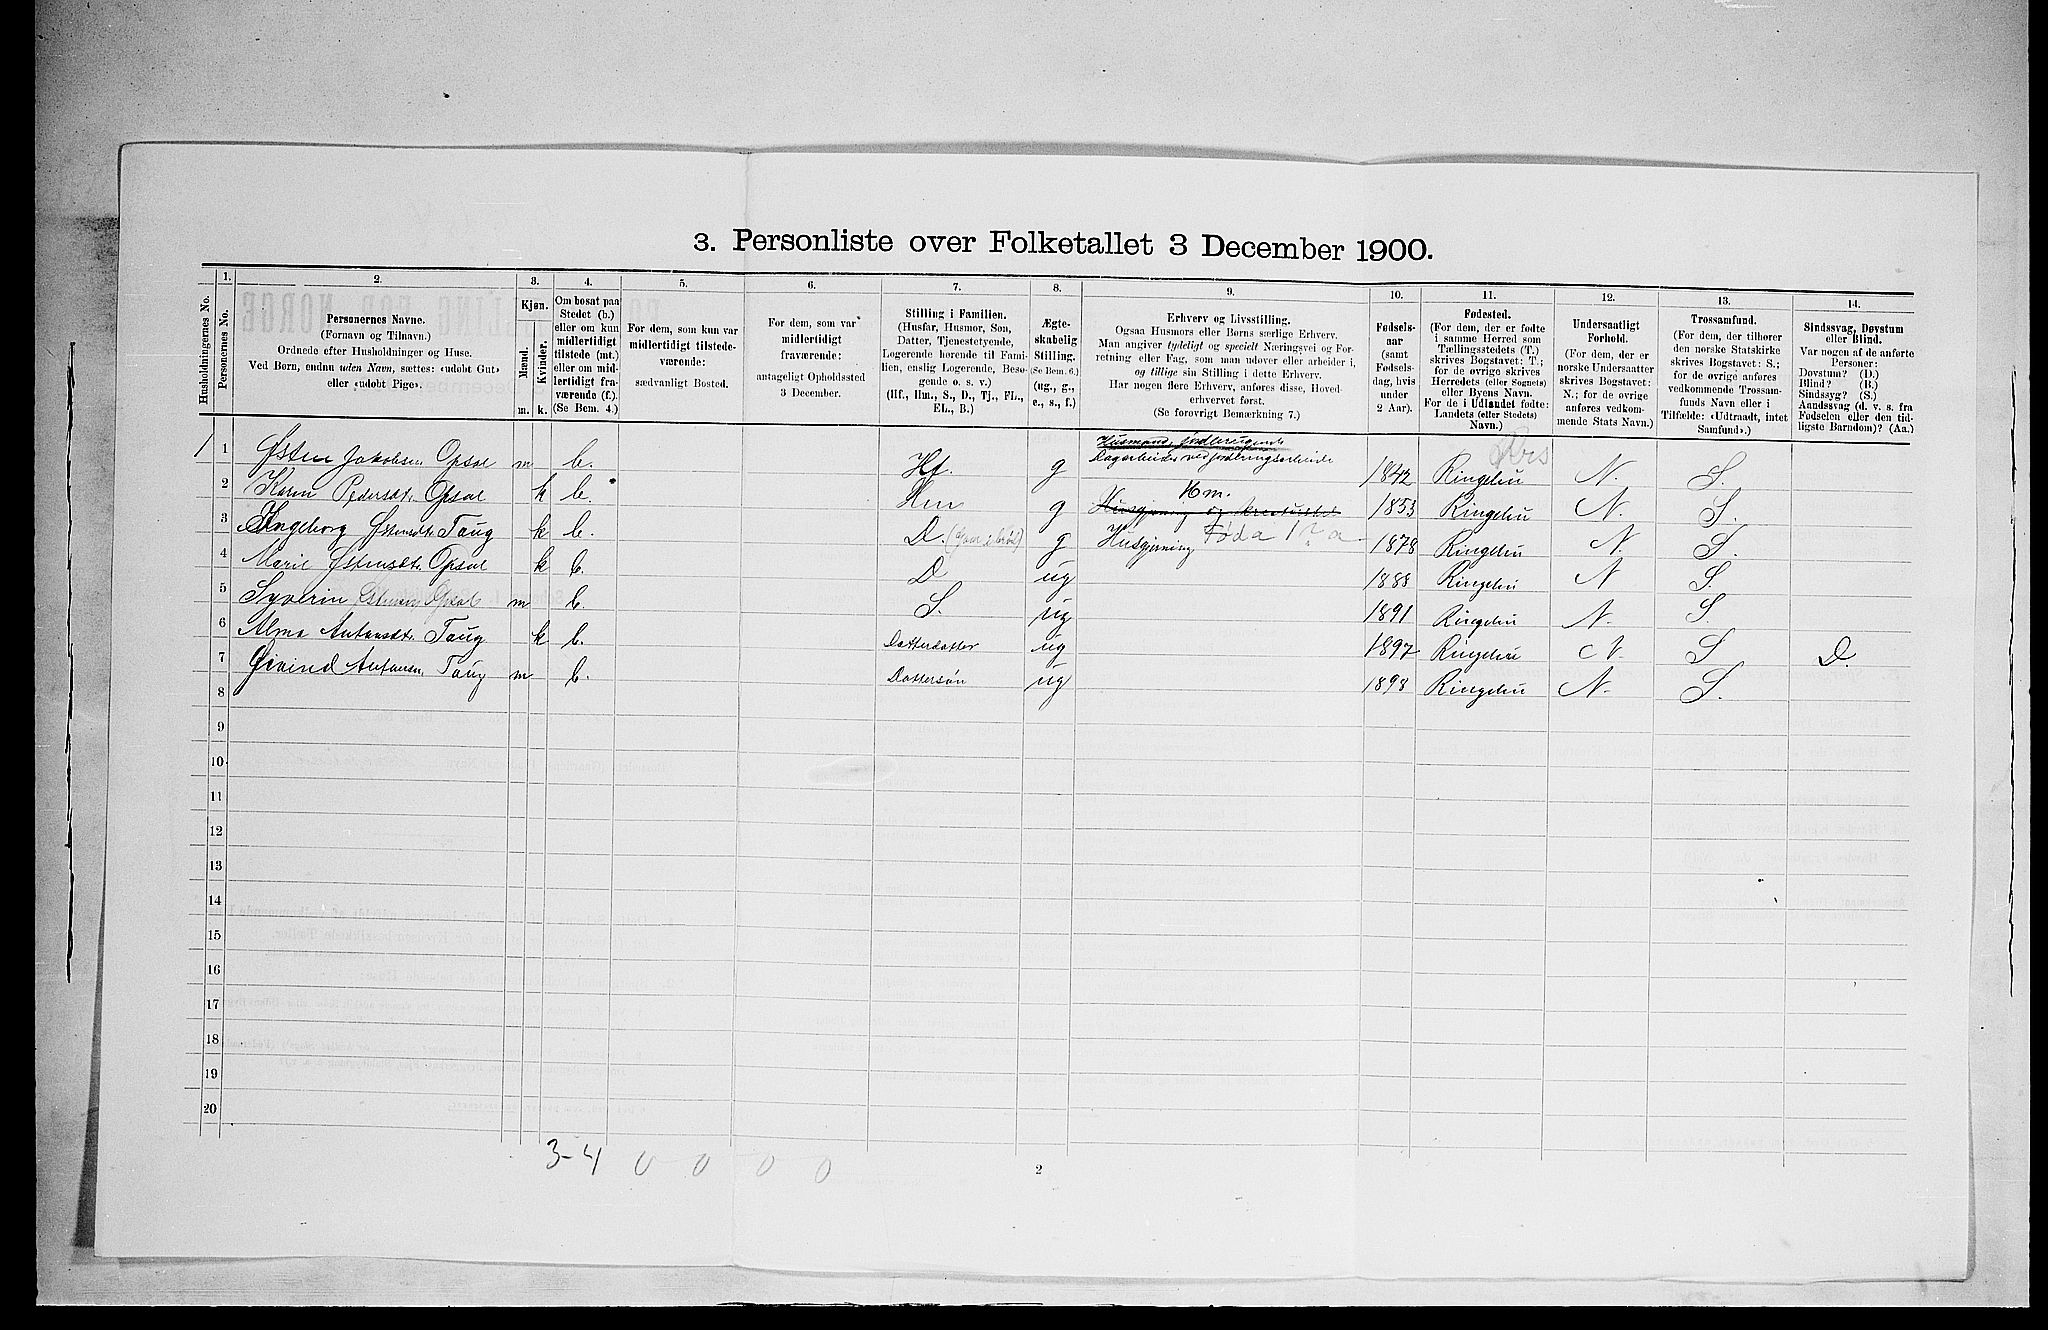 3. Personliste over Folketallet 3 December 1900.
Husholdningernes No.
1.
Personernes No.
2.
Personernes Navne.
(Fornavn og Tilnavn.)
Ordnede efter Husholdninger og Huse.
Ved Børn, endnu uden Navn, sættes: «udobt Gut»
eller «udobt Pige».
3.
Kjøn.
Mænd.
Kvinder.
m.
k.
4.
Om bosat paa
Stedet (b.)
eller om kun
midlertidigt
tilstede (mt.)
eller om mid-
lertidigt fra-
værende (f.).
(Se Bem. 4.)
5.
For dem, som kun var
midlertidigt tilstede-
værende:
sædvanligt Bosted.
6.
For dem, som var
midlertidigt
fraværende:
antageligt Opholdssted
3 December.
7.
Stilling i Familien.
(Husfar, Husmor, Søn,
Datter, Tjenestetyende,
Logerende hørende til Fami-
lien, enslig Logerende, Besø-
gende o. s. v.)
(Hf., Hm., S., D., Tj., FL.,
EL., B.)
8.
Ægte-
skabelig
Stilling.
(Se Bem. 6.)
(ug., g.,
e., s., f.)
9.
Erhverv og Livsstilling.
Ogsaa Husmors eller Børns særlige Erhverv.
Man angiver tydeligt og specielt Næringsvei og For-
retning eller Fag, som man udøver eller arbeider i,
og tillige sin Stilling i dette Erhverv.
Har nogen flere Erhverv, anføres disse, Hoved-
erhvervet først.
(Se forøvrigt Bemærkning 7.)
10.
Fødsels-
aar
(samt
Fødsels-
dag, hvis
under
2 Aar).
11.
Fødested.
(For dem, der er fødte
i samme Herred som
Tællingsstedets (T.)
skrives Bogstavet: T.;
for de øvrige skrives
Herredets (eller Sognets)
eller Byens Navn.
For de i Udlandet fødte:
Landets (eller Stedets)
Navn.)
12.
Undersaatligt
Forhold.
(For dem, der er
norske Undersaatter
skrives Bogstavet:
N.; for de øvrige
anføres vedkom-
mende Stats Navn.)
13.
Trossamfund.
(For dem, der tilhører
den norske Statskirke
skrives Bogstavet: S.;
for de øvrige anføres
vedkommende Trossam-
funds Navn eller i
Tilfælde: «Udtraadt, intet
Samfund».)
14.
Sindssvag, Døvstum
eller Blind.
Var nogen af de anførte
Personer:
Døvstum? (D.)
Blind? (B.)
Sindssyg? (S.)
Aandssvag (d. v. s. fra
Fødselen eller den tid-
ligste Barndom)? (Aa.)
1 1 Østen Jakobsen Opsal m b. Hf. g Dagarbeider ved jordbrugsarbeide 1842 Ringebu N. S.
2 Karen Pedersdt. Opsal k b. Hm g Hm. 1853 Ringebu N. S.
3 Ingeborg Østensdt. Taug k b. D. g Husgjerning 1878 Ringebu N. S.
4 Marie Østensdt. Opsal k b. D ug 1888 Ringebu N S
5 Syverin Østensen Opsal m b. S. ug 1891 Ringebu N. S.
6 Alma Antonsdt. Taug k b. Datterdatter ug 1897 Ringebu N. S D.
7 Øivind Antonsen Taug m b. Dattersøn ug 1898 Ringebu N. S.
8
9
10
11
12
13
14
15
16
17
18
19
20
3-4 0 0 0 0
2